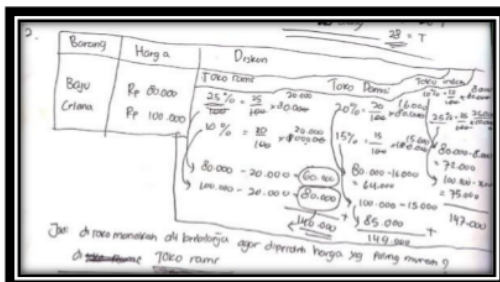 28 = T
2.
Barang Harga Diskon
Toko rame Toko Damai Toko indah
Baju Rp 80.000
Celana Rp 100.000
25% = 25/100 × 80.000 20.000
20% = 20/100 16.000
10% = 10
15% = 15/100 15.000
25% = 25 25.000
80.000 - 20.000 = 60.000
100.000 - 20.000 = 80.000
140.000 +
80.000 - 16.000
= 64.000
100.000 - 15.000
85.000 +
149.000
80.000 - 8.000
= 72.000
= 75.000
147.000
Jadi di toko manakah ali berbelanja agar diperoleh harga yg paling murah?
di Toko rame